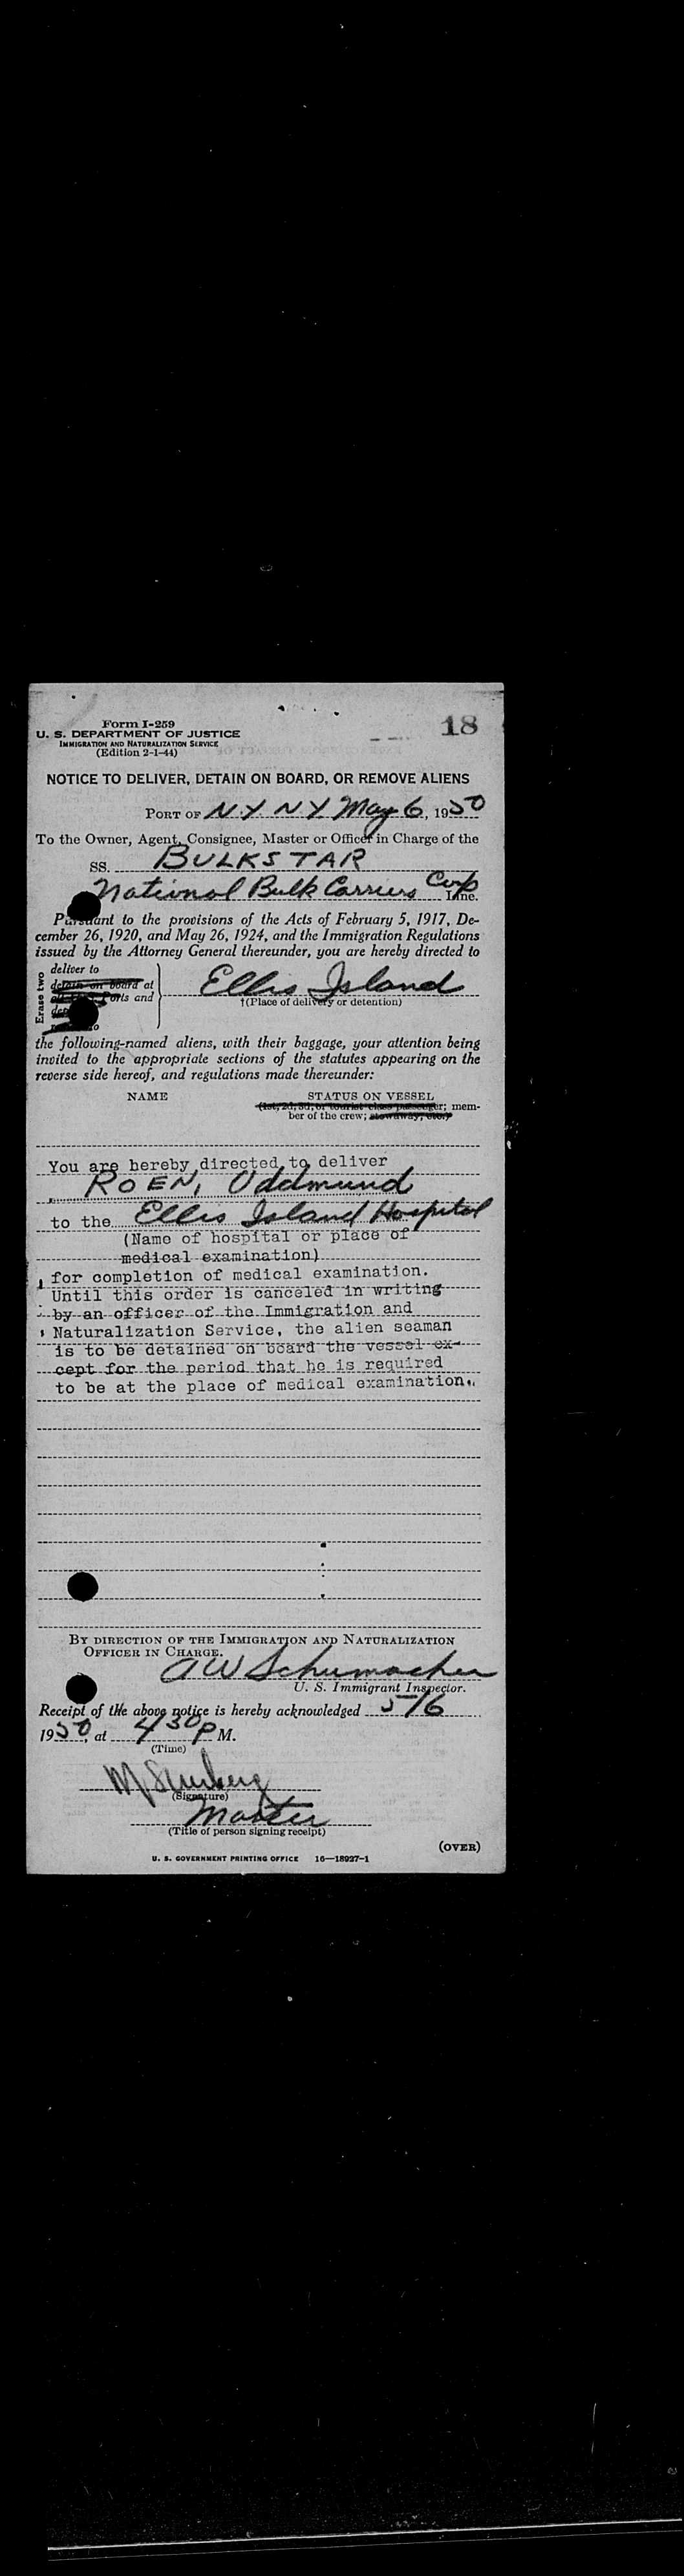 18
Form I-259
U. S. DEPARTMENT OF JUSTICE
IMMIGRATION AND NATURALIZATION SERVICE
(Edition 2-1-44)
NOTICE TO DELIVER, DETAIN ON BOARD, OR REMOVE ALIENS
PORT OF N.Y. N.Y. May 6, 1950
To the Owner, Agent, Consignee, Master or Officer in Charge of the
SS. BULKSTAR
National Bulk Carriers Corp Line.
Pursuant to the provisions of the Acts of February 5, 1917, De-
cember 26, 1920, and May 26, 1924, and the Immigration Regulations
issued by the Attorney General thereunder, you are hereby directed to
Erase two
deliver to
detain on board at
Ports and
Ellis Island
†(Place of delivery or detention)
the following-named aliens, with their baggage, your attention being
invited to the appropriate sections of the statutes appearing on the
reverse side hereof, and regulations made thereunder:
NAME STATUS ON VESSEL
(1st, 2d, 3d, or tourist class passenger; mem-
ber of the crew; stowaway, etc.)
You are hereby directed to deliver
ROEN, Oddmund
to the Ellis Island Hospital
(Name of hospital or place of
medical examination)
for completion of medical examination.
Until this order is canceled in writing
by an officer of the Immigration and
Naturalization Service, the alien seaman
is to be detained on board the vessel ex-
cept for the period that he is required
to be at the place of medical examination.
BY DIRECTION OF THE IMMIGRATION AND NATURALIZATION
OFFICER IN CHARGE.
A W Schumacher
U. S. Immigrant Inspector.
Receipt of the above notice is hereby acknowledged 5/6
1950, at 4 30 P M.
(Time)
(Signature)
Master
(Title of person signing receipt)
(OVER)
U. S. GOVERNMENT PRINTING OFFICE 16—18927-1